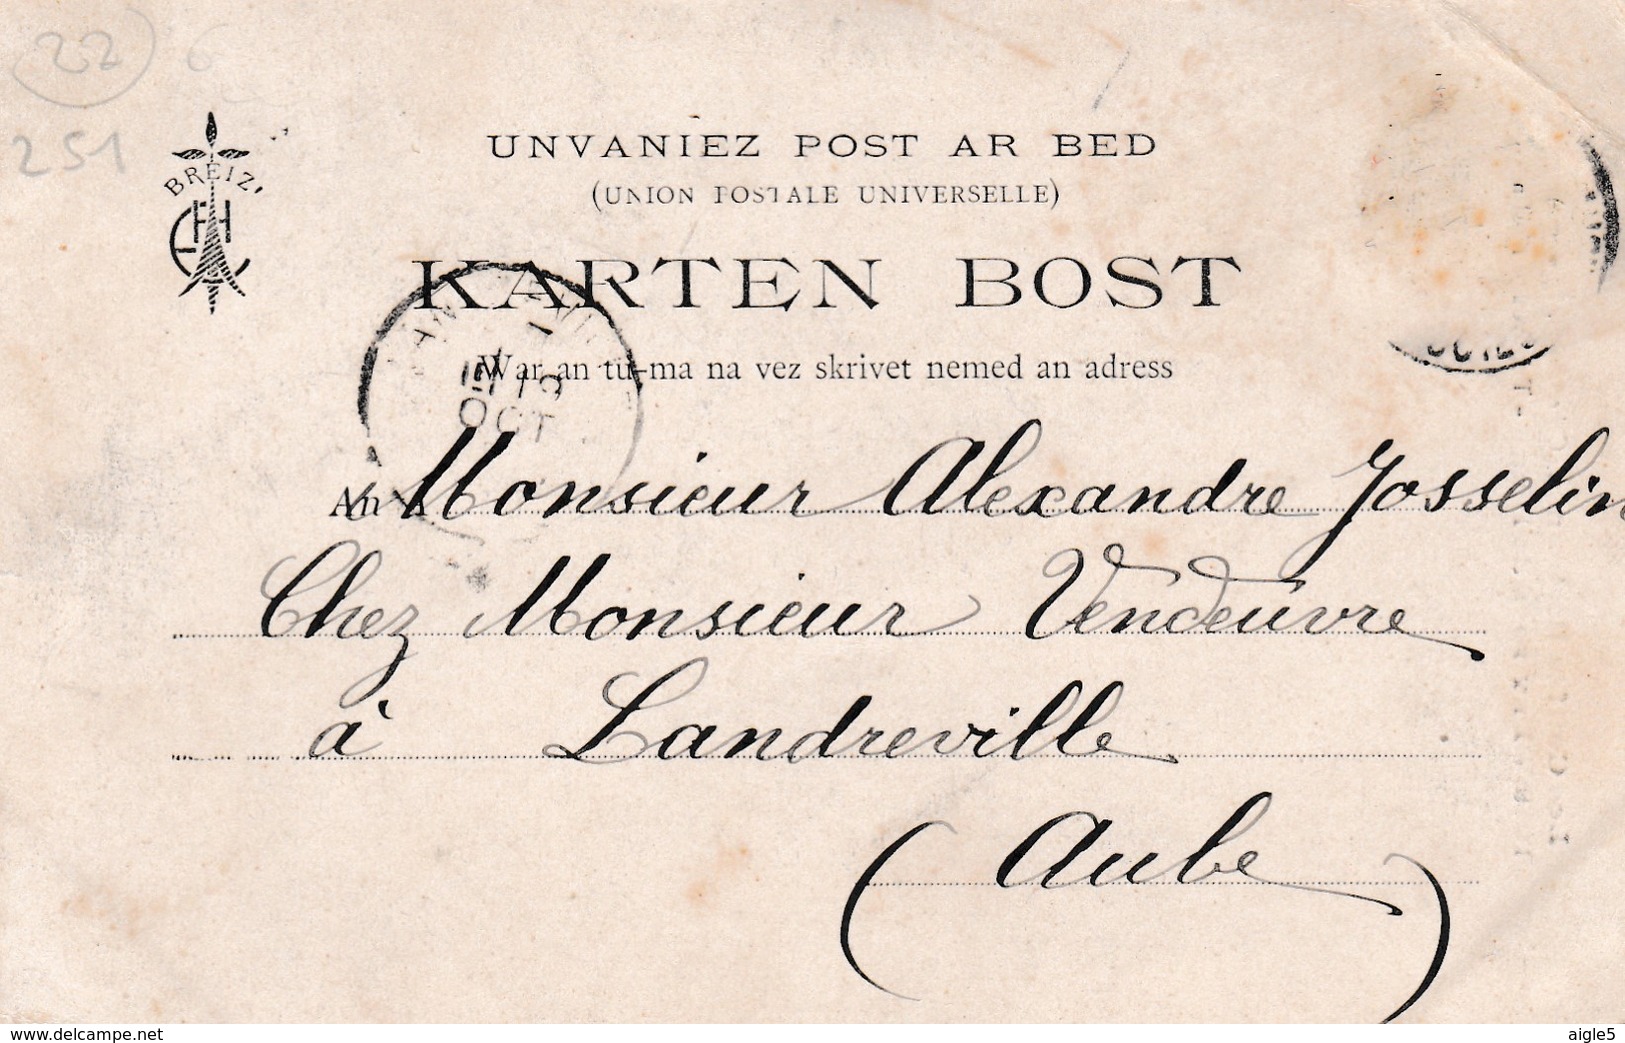 22
251
BREIZ
UNVANIEZ POST AR BED
(UNION POSTALE UNIVERSELLE)
KARTEN BOST
War an tu-ma na vez skrivet nemed an adress
OCT
Monsieur Alexandre Josselin
Chez Monsieur Vendeuvre
à Landreville
(Aube)
www.delcampe.net
aigle5